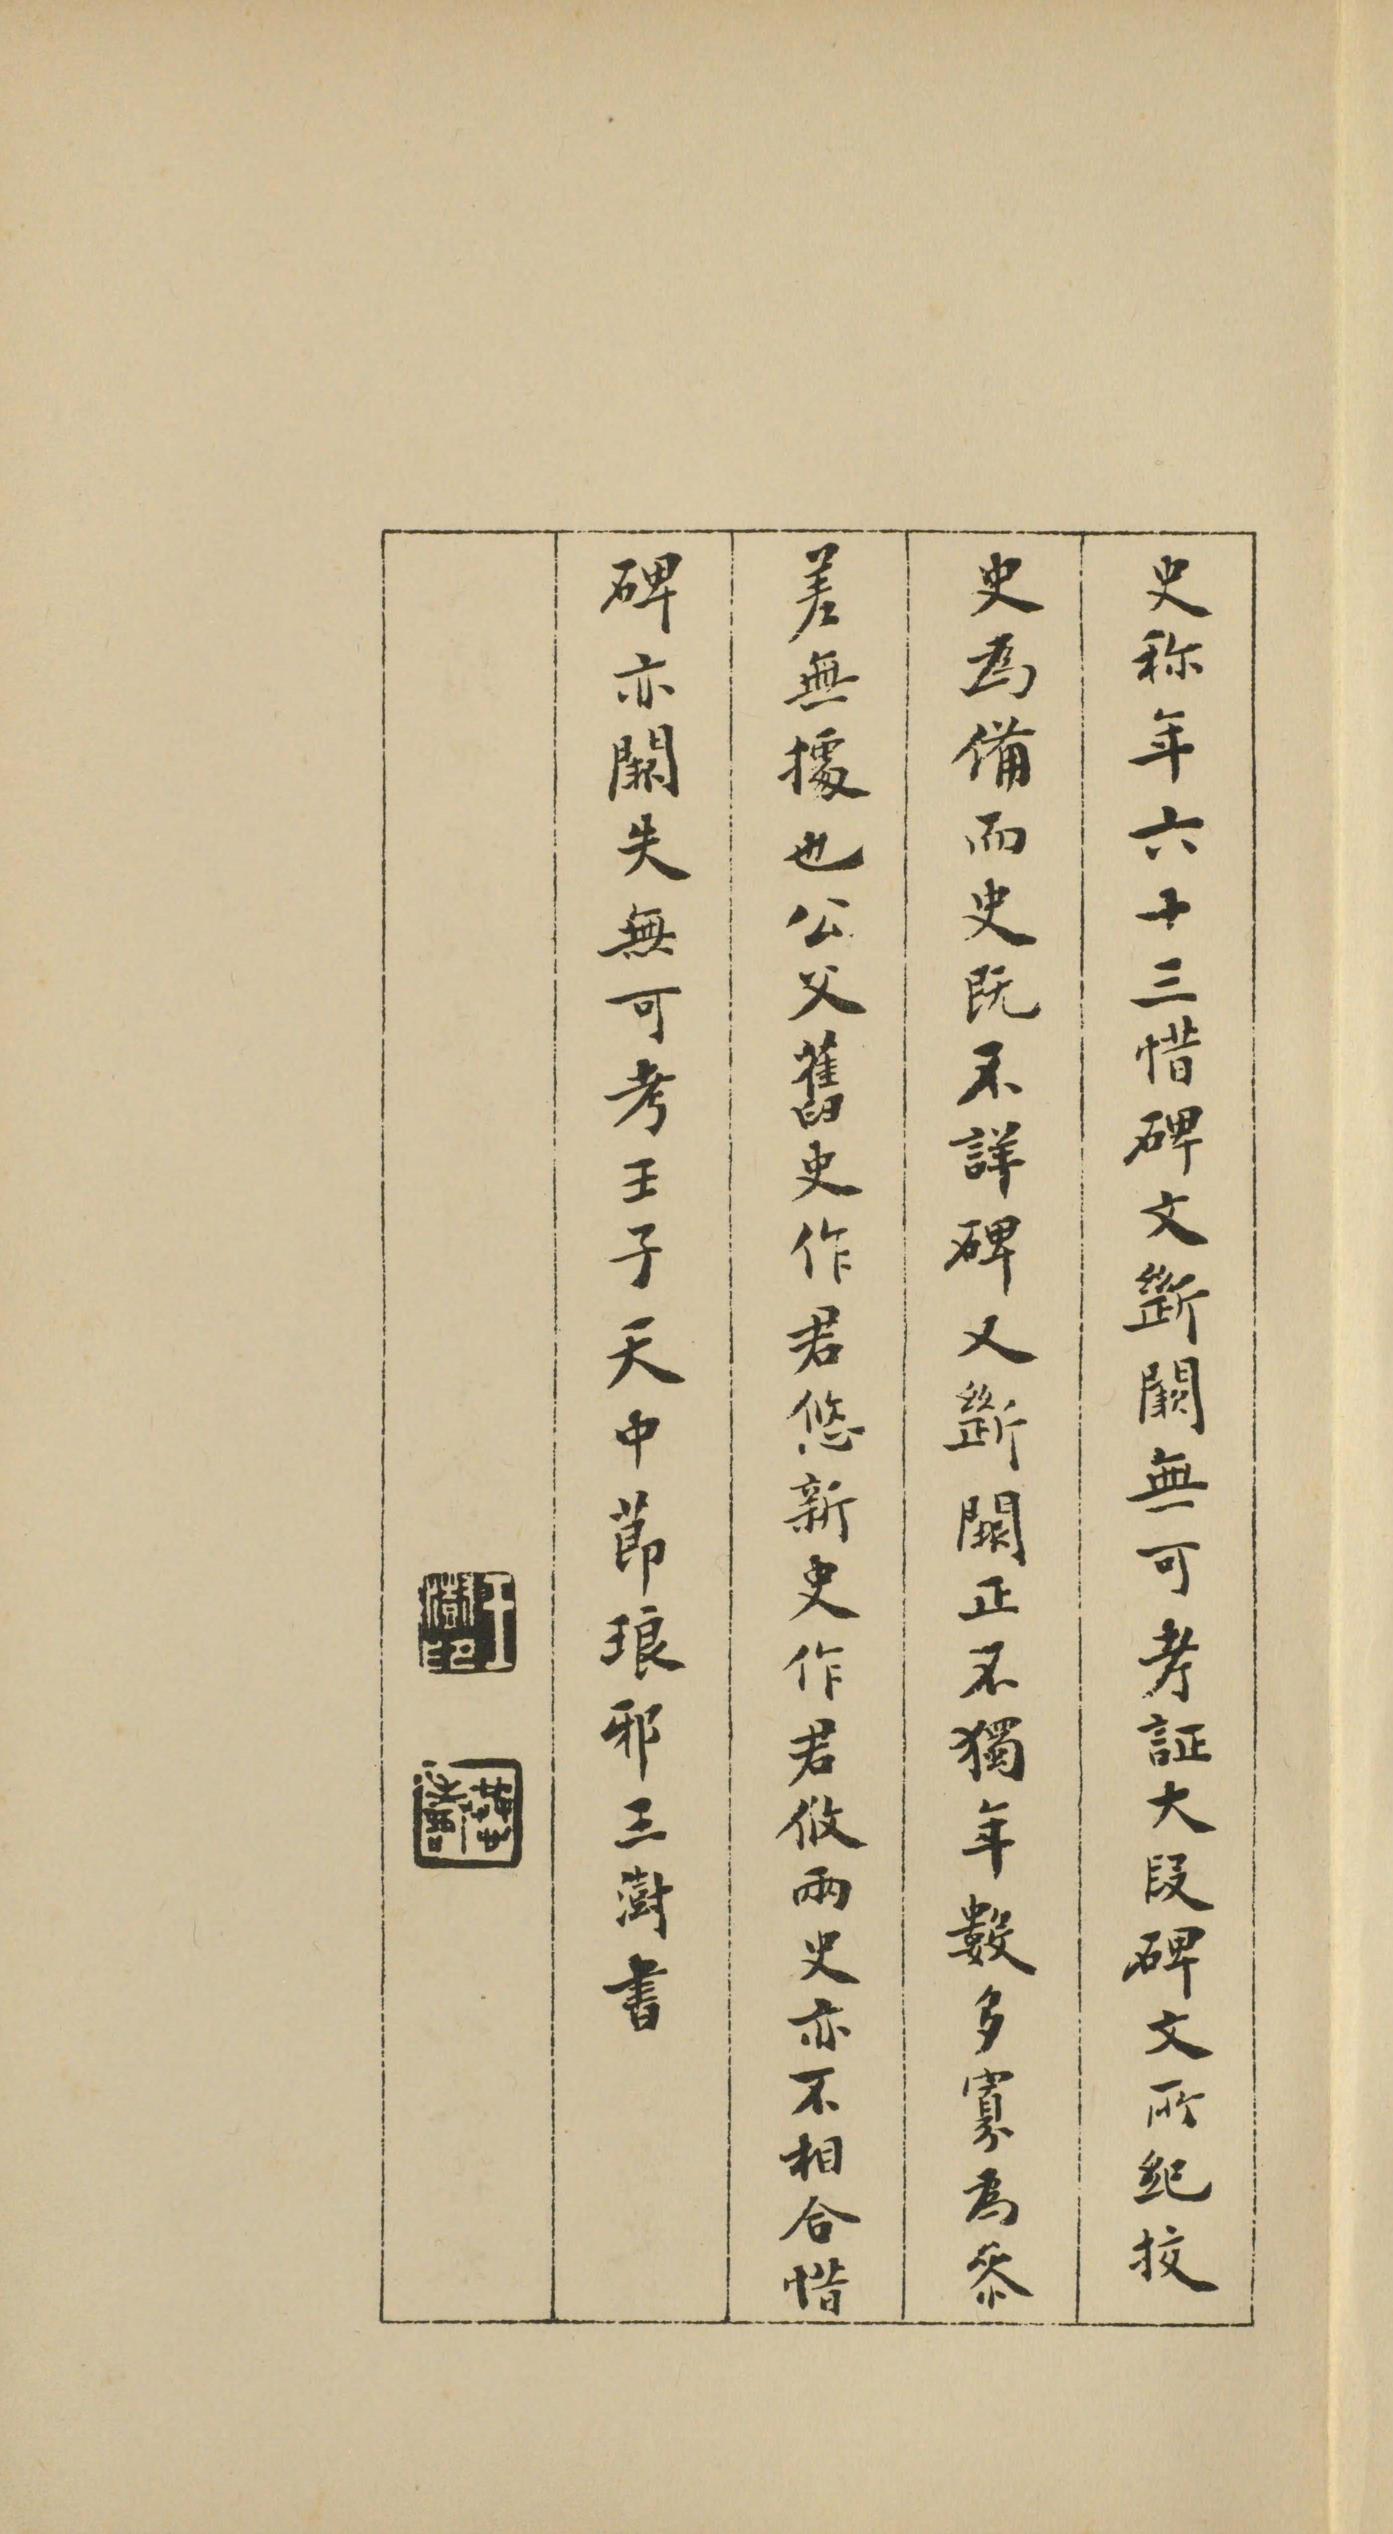 史称年六十三惜碑文斷闕無可考証大段碑文所紀挍
史為備而史既不詳碑又斷闕正不獨年數多寡為叅
差無據也公父舊史作君悠新史作君攸兩史亦不相合惜
碑亦闕失無可考壬子天中節琅邪王澍書